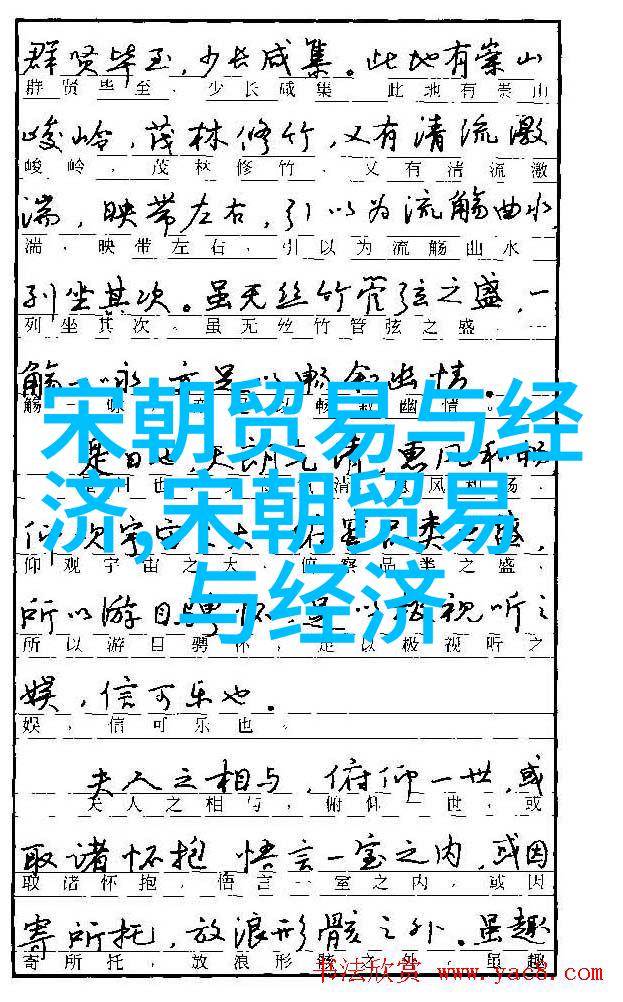 群贤毕至，少长咸集。此地有崇山
群贤毕至，少长咸集。此地有崇山
峻岭，茂林修竹，又有清流激
峻岭，茂林修竹，又有清流激
湍，映带左右，引以为流觞曲水，
湍，映带左右，引以为流觞曲水
列坐其次。虽无丝竹管弦之盛，一
列坐其次。虽无丝竹管弦之盛，一
觞一咏，亦足以畅叙幽情。
觞一咏，以畅叙幽情。
宋朝贸易与经
济,宋朝贸易
与经济
是日也，天朗气清，惠风和畅
日也，清，惠风和畅，
仰观宇宙之大，俯察品类之盛，
仰观宇宙之大，俯察品类之盛，
所以游目骋怀，足以极视听之
所以游目骋怀，足以极视听之
娱，信可乐也。
娱，信可乐也。
夫人之相与，俯仰一世，或
夫人之相与，俯仰一世，或
取诸怀抱 悟言一室之内，或因
取诸怀抱，悟言一室之内，或因
寄所托，放浪形骸之外。虽趣
寄所托，放浪形骸之外。虽趣
书法欣赏 www.yac8.com